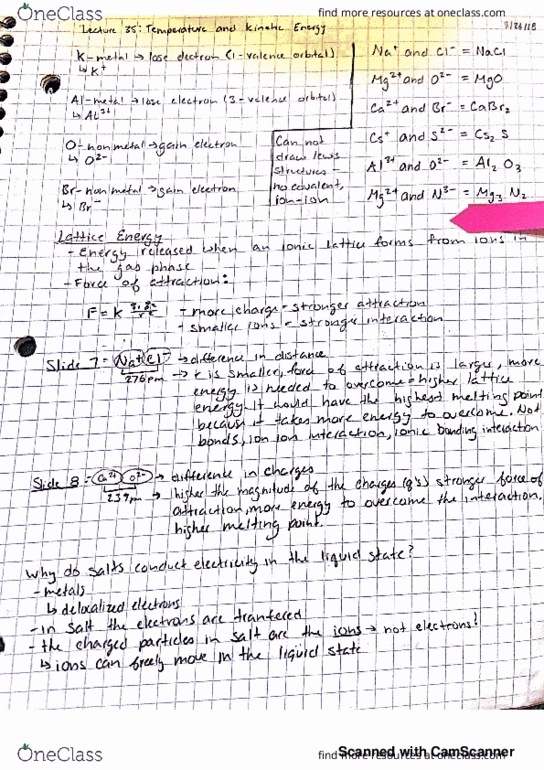 OneClass
find more resources at oneclass.com
Lecture 35: Temperature and Kinetic Energy
K-metal → lose electron (1-valence orbital)
↳ K⁺
Al-metal → lose electron (3-valence orbital)
↳ Al³⁺
O-nonmetal → gain electron
↳ O²⁻
Br-nonmetal → gain electron
↳ Br⁻
Can not
draw lewis
structures
no covalent,
ion-ion
Na⁺ and Cl⁻ = NaCl
Mg²⁺ and O²⁻ = MgO
Ca²⁺ and Br⁻ = CaBr₂
Cs⁺ and S²⁻ = Cs₂S
Al³⁺ and O²⁻ = Al₂O₃
Mg²⁺ and N³⁻ = Mg₃N₂
Lattice Energy
- Energy released when an ionic lattice forms from ions in
the gas phase
- Force of attraction:
F = K
- more charge = stronger attraction
- smaller ions = stronger interaction
Slide 7 = Na⁺ Cl⁻ → difference in distance
276pm → r is smaller, force of attraction is larger, more
energy is needed to overcome = higher lattice
energy. It would have the highest melting point
because it takes more energy to overcome. Not
bonds, ion ion interaction, ionic bonding interaction
Slide 8 = Ca²⁺ O²⁻ → difference in charges
239pm → higher the magnitude of the charges (q's) stronger force of
attraction, more energy to overcome the interaction,
higher melting point.
Why do salts conduct electricity in the liquid state?
- metals
↳ delocalized electrons
- in salt the electrons are tranfered
- the charged particles in salt are the ions → not electrons!
↳ ions can freely move in the liquid state
OneClass
Scanned with CamScanner